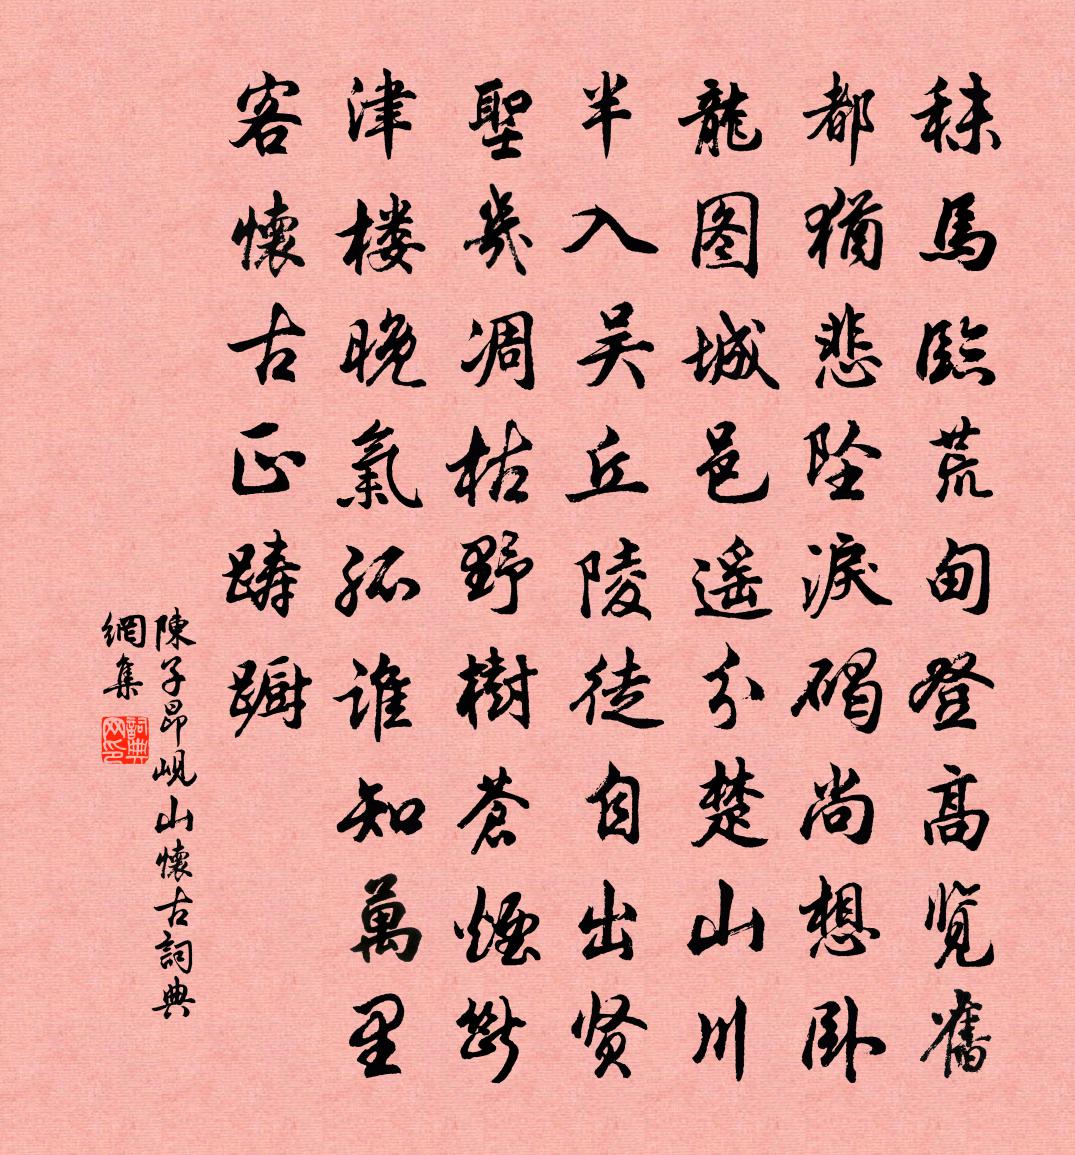 秣馬臨荒甸登高覽舊
都猶悲墜淚碣尚想臥
龍图城邑遥分楚山川
半入吴丘陵徒自出贤
聖幾凋枯野樹蒼煙斷
津楼晚氣孤誰知萬里
客懷古正躊躕
陳子昂峴山懷古詞典
網集
詞典
网印